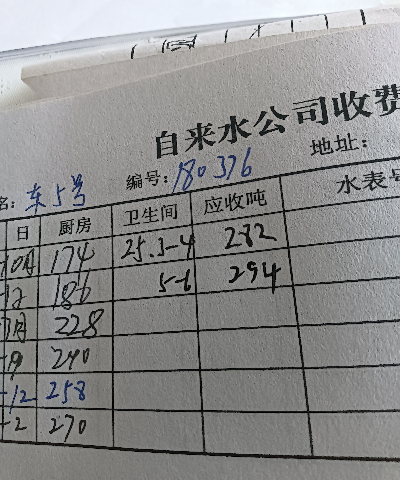 自来水公司收费
名: 东5号 编号: 180376 地址:
日 厨房 卫生间 应收吨 水表号
10月 174 25.3-4 282
-12 186 5-6 294
月 228
240
-12 258
-2 270